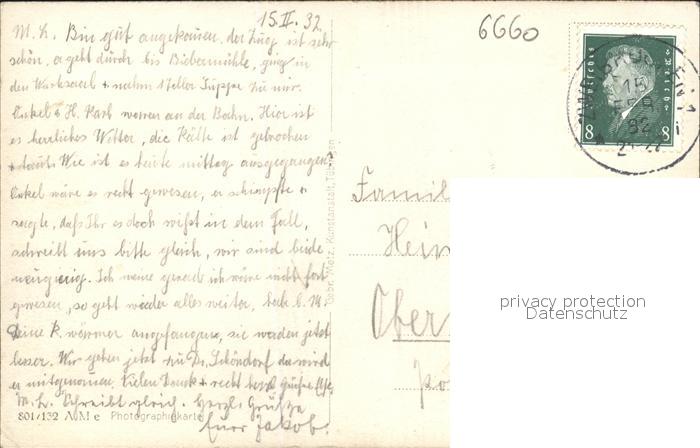 15.II.32.
6660
M. L. Bin gut angekommen. der Zug ist sehr
schön, er geht durch bis Bibermühle, ging in
den Wartesaal + nahm 1 Teller Suppe zu mir.
Onkel + H. Karb waren an der Bahn. Hier ist
es herrliches Wetter, die Kälte ist gebrochen
+ taut. Wie ist es heute mittag ausgegangen?
Onkel wäre es recht gewesen, er schimpfte +
sagte, daß Ihr es doch wißt in dem Fall,
schreibt uns bitte gleich, wir sind beide
neugierig. Ich meine gerade ich wäre nicht fort
gewesen, so geht wieder alles weiter,
Deine
angefangen, sie werden jetzt
besser. Wir gehen jetzt zu Dr. Schöndorf da wird
er mitgenommen. Vielen Dank + recht herzl.
M. L. Schreibt gleich. Herzl. Grüße
Euer Jakob.
801/132 A.M.e Photographiekarte
Gebr. Metz, Kunstanstalt, Tübingen
Deutsches Reich
8 8
15
FEB
32
Famil
Heim
Ober
privacy protection
Datenschutz